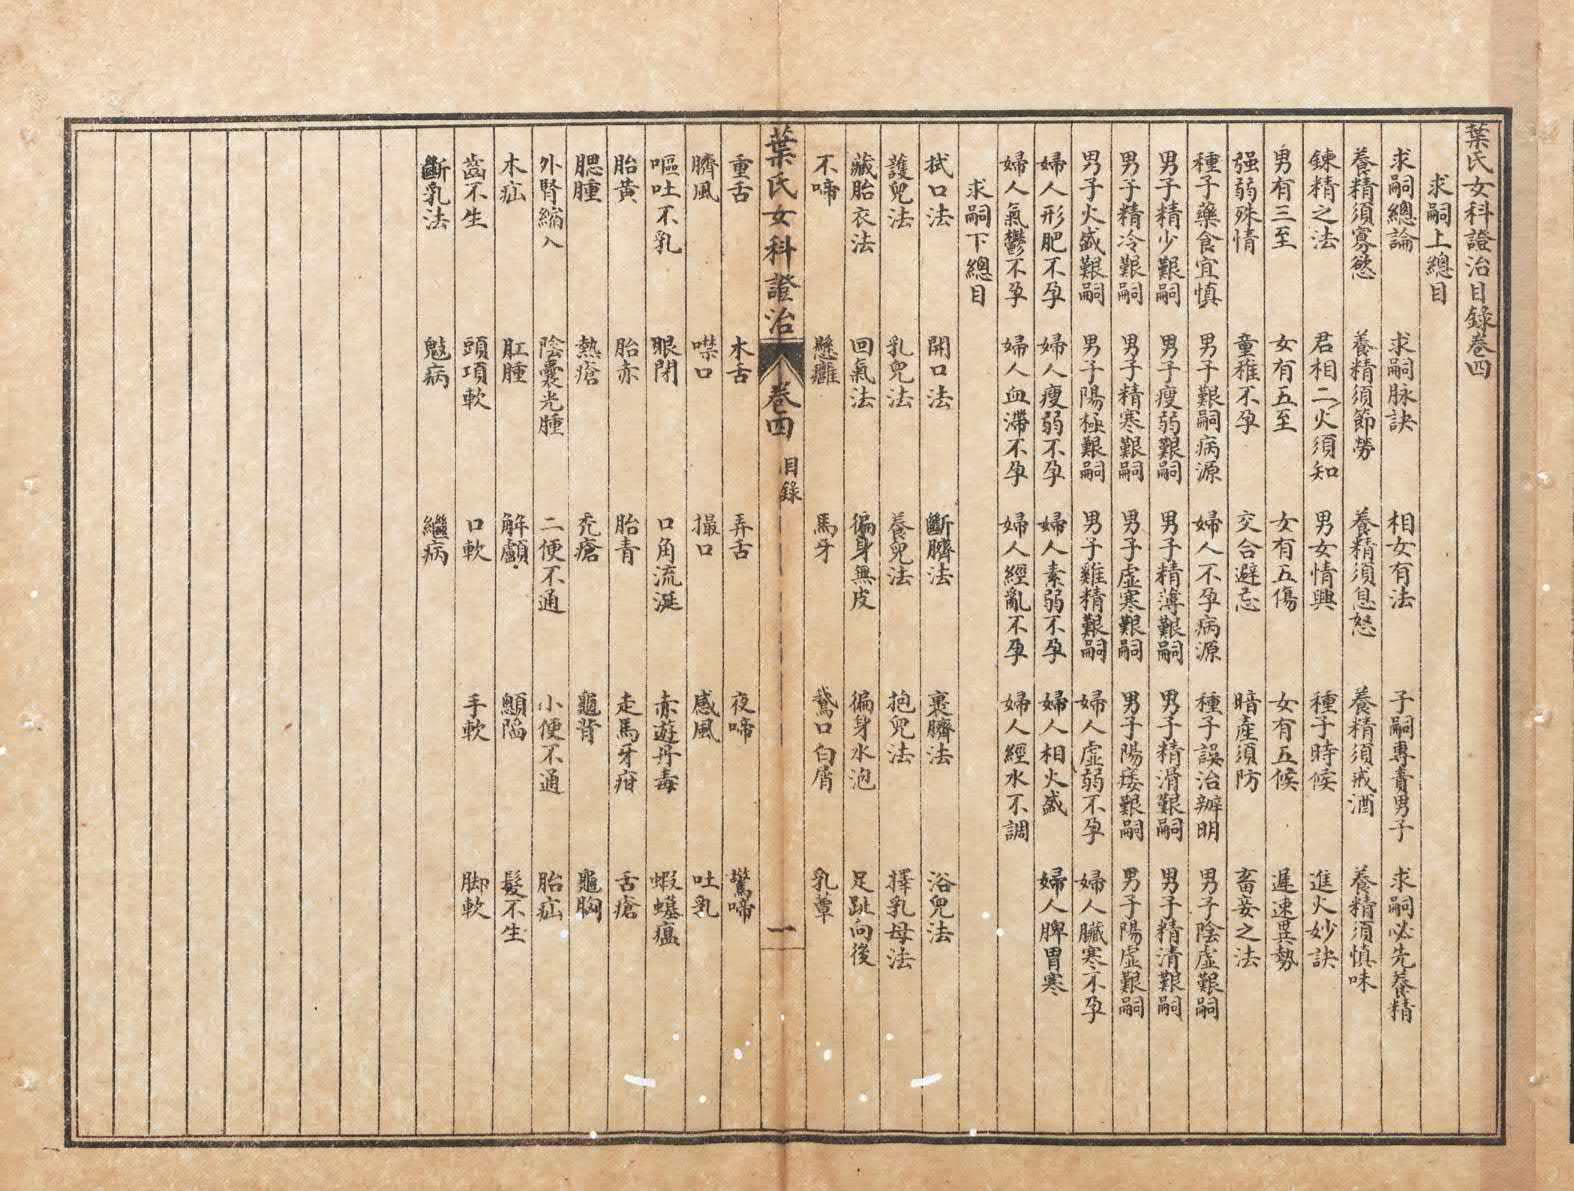 葉氏女科證治目錄卷四
求嗣上總目
求嗣總論 求嗣脉訣 相女有法 子嗣專責男子 求嗣必先養精
養精須寡慾 養精須節勞 養精須息怒 養精須戒酒 養精須慎味
鍊精之法 君相二火須知 男女情興 種子時候 進火妙訣
男有三至 女有五至 女有五傷 女有五候 遲速異勢
强弱殊情 童稚不孕 交合避忌 暗產須防 畜妾之法
種子藥食宜慎 男子艱嗣病源 婦人不孕病源 種子誤治辨明 男子陰虛艱嗣
男子精少艱嗣 男子瘦弱艱嗣 男子精薄艱嗣 男子精滑艱嗣 男子精清艱嗣
男子精冷艱嗣 男子精寒艱嗣 男子虛寒艱嗣 男子陽痿艱嗣 男子陽虛艱嗣
男子火盛艱嗣 男子陽極艱嗣 男子雞精艱嗣 婦人虛弱不孕 婦人臟寒不孕
婦人形肥不孕 婦人瘦弱不孕 婦人素弱不孕 婦人相火盛 婦人脾胃寒
婦人氣鬱不孕 婦人血滯不孕 婦人經亂不孕 婦人經水不調
求嗣下總目
拭口法 開口法 斷臍法 裹臍法 浴兒法
護兒法 乳兒法 養兒法 抱兒法 擇乳母法
藏胎衣法 回氣法 徧身無皮 徧身水泡 足趾向後
不啼 懸癰 馬牙 鵞口白屑 乳蕈
葉氏女科證治 卷四 目錄 一
重舌 木舌 弄舌 夜啼 驚啼
臍風 噤口 撮口 感風 吐乳
嘔吐不乳 眼閉 口角流涎 赤遊丹毒 蝦蟇瘟
胎黃 胎赤 胎青 走馬牙疳 舌瘡
腮腫 熱瘡 禿瘡 龜背 龜胸
外腎縮入 陰囊光腫 二便不通 小便不通 胎疝
木疝 肛腫 解顱 顖陷 髮不生
齒不生 頭項軟 口軟 手軟 脚軟
斷乳法 魃病 繼病